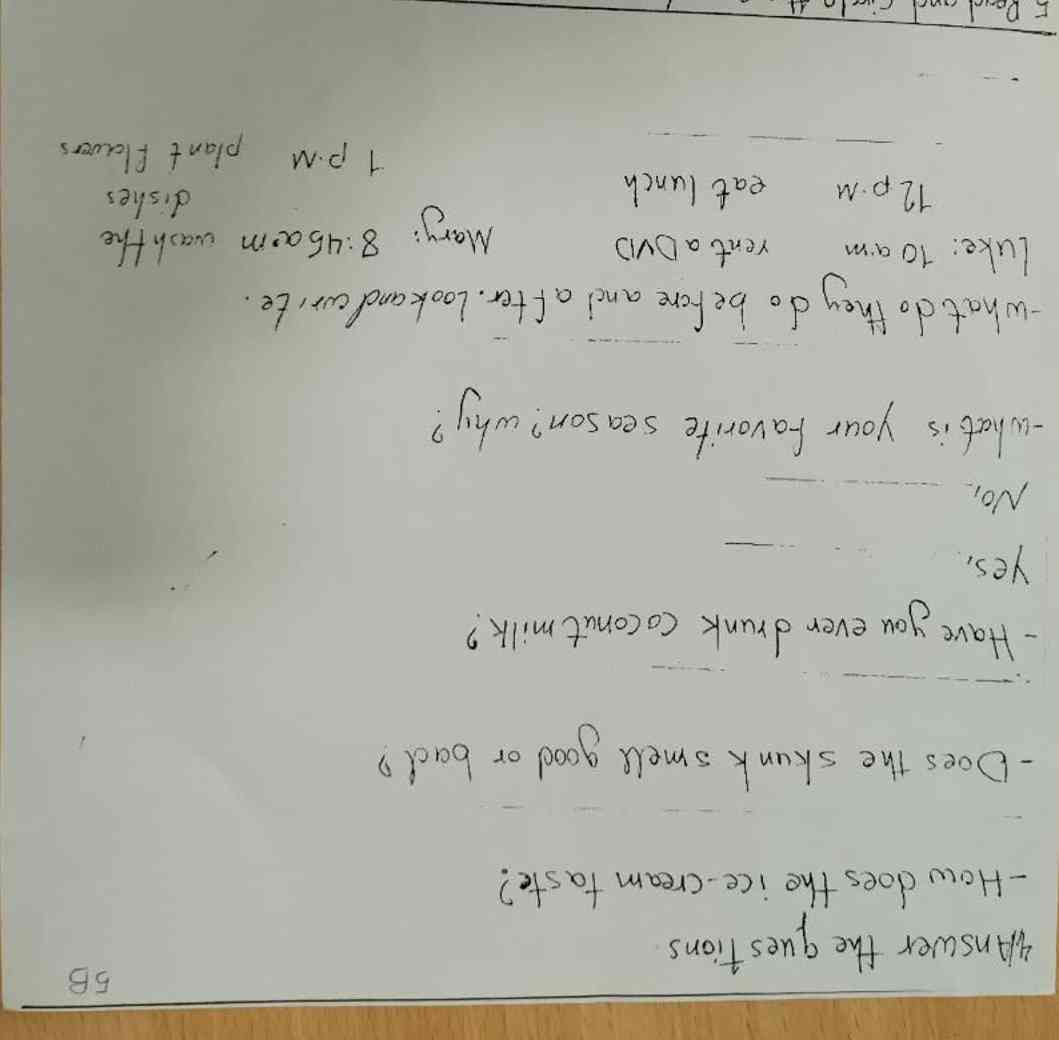 5B
4/Answer the questions
- How does the ice-cream taste?
- Does the skunk smell good or bad?
- Have you ever drunk coconut milk?
Yes,
No,
- What is your favorite season? Why?
- What do they do before and after. Look and write.
Luke: 10 a.m rent a DVD Mary: 8:45 a.m wash the
dishes
12 p.M eat lunch
1 p.M plant flowers
5 Read and Circle